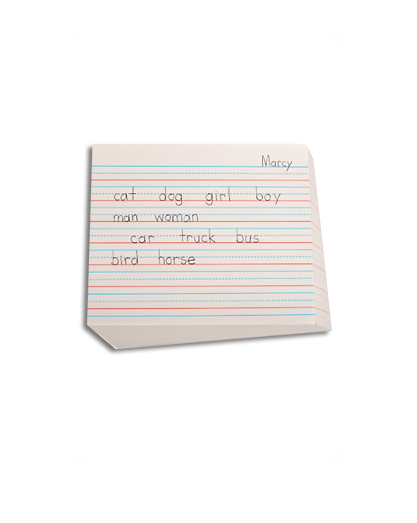 Marcy
cat dog girl boy
man woman
car truck bus
bird horse